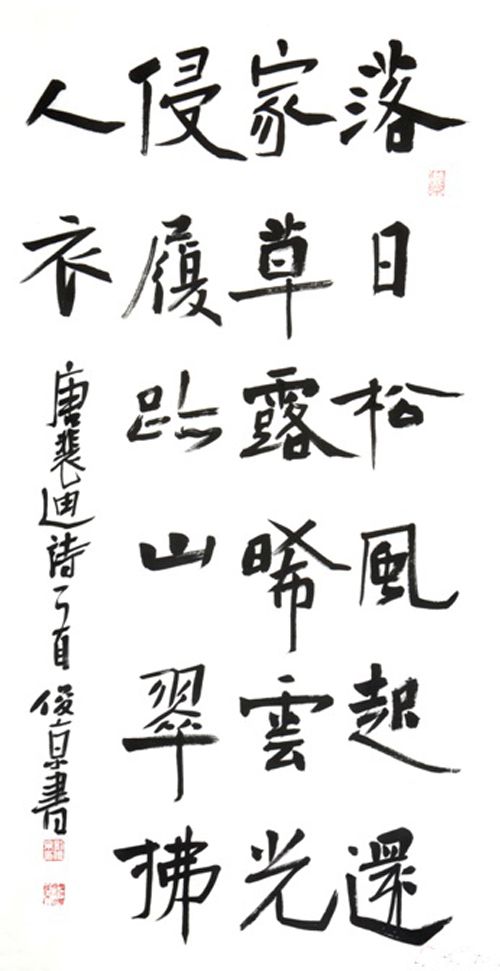 落日松風起還
家草露晞雲光
侵履跡山翠拂
人衣
唐裴迪詩 俊京書